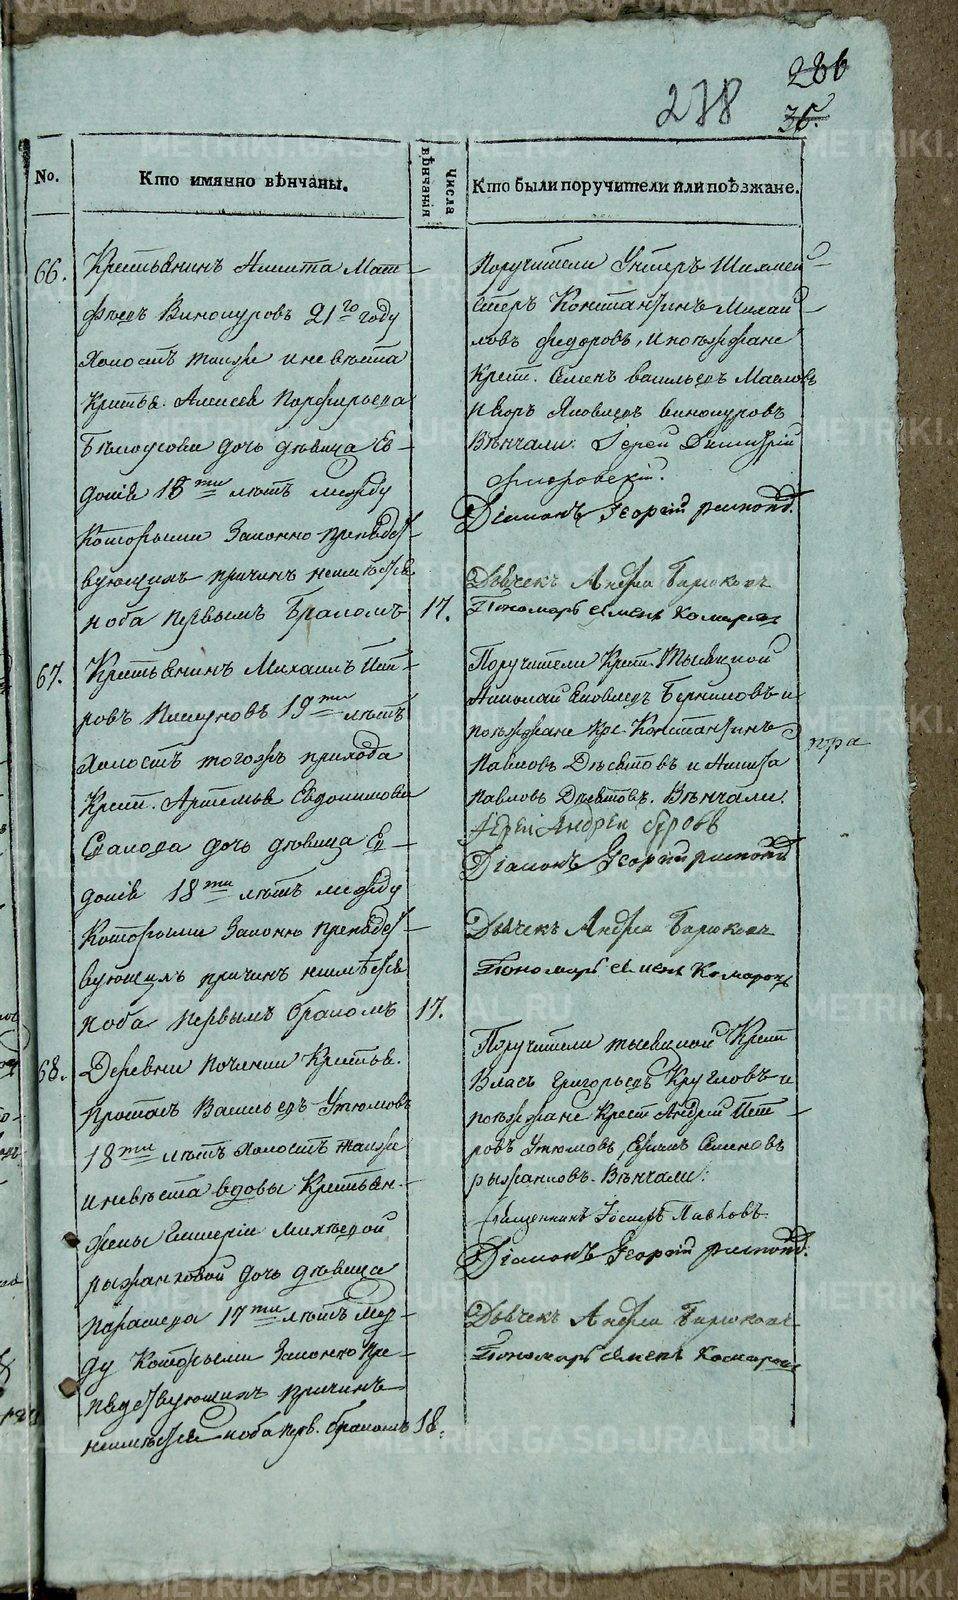 286
278
36.
No.
Кто имянно вѣнчаны.
Числа вѣнчанія
Кто были поручители или поѣзжане.
66.
Крестьянинъ Никита Мат-
фѣевъ Винокуровъ 21го году
холостъ также и невѣста
Крестья. Алексея Порфирьева
Бѣлоусова дочь дѣвица Ев-
докія 18ти лѣтъ между
которыми Законно препядст-
вующихъ причинъ неимѣется
и оба первымъ бракомъ
17.
Поручители Унтеръ Шихмей-
стеръ Константинъ Михай-
ловъ Федоровъ, и поѣзжане
Крест. Семенъ Васильевъ Масловъ
Егоръ Яковлевъ Винокуровъ
Вѣнчали: Іерей Димитрій
Діаконъ Георгій
Дьячекъ Андрей Бирюковъ
Пономарь Семенъ Комаровъ
67.
Крестьянинъ Михаилъ Пет-
ровъ Пискуновъ 19ти лѣтъ
холостъ тогожъ прихода
Крест. Артемья Евдокимова
дочь дѣвица Ев-
докія 18ти лѣтъ между
Которыми Законно препядст-
вующихъ причинъ неимѣется
и оба первымъ бракомъ
17.
Поручители Крест. Тысяцкой
Николай Яковлевъ и
поѣзжане Кре. Константинъ
Павловъ Девятовъ и Никита
Павловъ Девятовъ. Вѣнчали:
Іерей Андрей Серовъ
Діаконъ Георгій
Дьячекъ Андрей Бирюковъ
Пономарь Семенъ Комаровъ
68.
Деревни Починки Крестья.
Василь евъ Утюмовъ
18ти лѣтъ холостъ также
и невѣста вдовы Крестьян.
жены Гликеріи Михѣевой
Рыжанковой дочь дѣвица
Параскева 17ти лѣтъ меж-
ду Которыми Законно пре-
пядствующихъ причинъ
неимѣется и оба перв. бракомъ
18.
Поручители тысяцкой Крест
Власъ Григорьевъ Кругловъ и
поѣзжане Крест Андрей Пет-
ровъ Утюмовъ, Ефимъ Семеновъ
Рыжанковъ. Вѣнчали:
Священникъ Іосифъ Павловъ
Діаконъ Георгій
Дьячекъ Андрей Бирюковъ
Пономарь Семенъ Комаровъ
METRIKI.GASO-URAL.RU